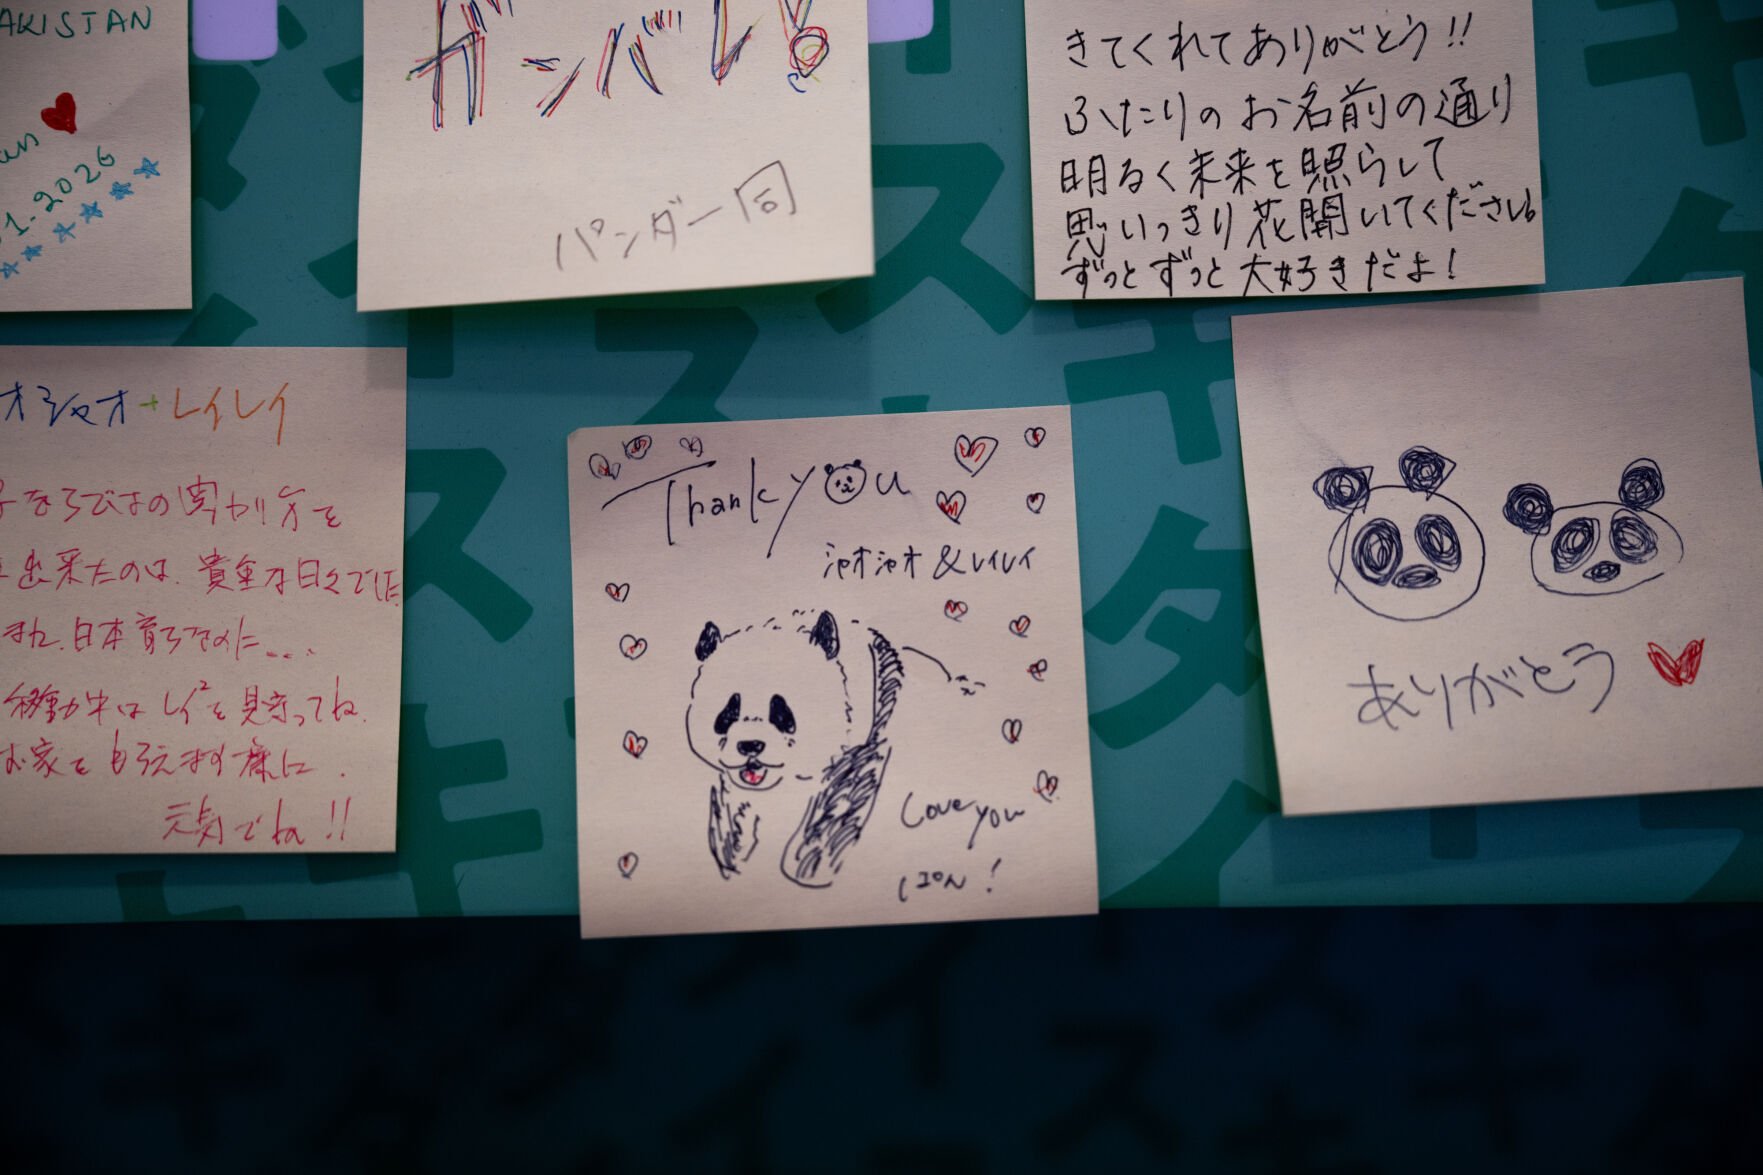 AKISTAN
1.2026
ガンバレ!
パンダ一同
きてくれてありがとう!!
ふたりのお名前の通り
明るく未来を照らして
思いっきり花開いてください
ずっとずっと大好きだよ!
オシャオ+レイレイ
子ならではの
出来たのは、貴重な日々でした
また、日本育ちなのに...
移動中はレイ²を見守ってね。
お家をもらえます様に。
元気でね!!
Thank you
シャオシャオ&レイレイ
Love you
ありがとう